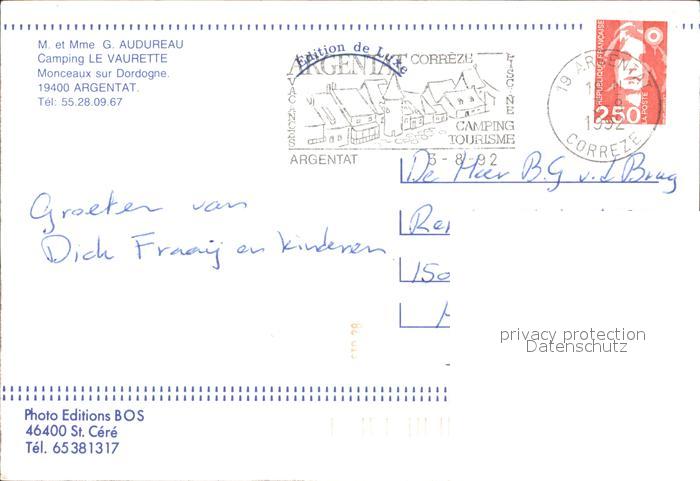 M. et Mme G. AUDUREAU
Camping LE VAURETTE
Monceaux sur Dordogne.
19400 ARGENTAT.
Tél: 55.28.09.67
Edition de Luxe
ARGENTAT CORRÈZE
VACANCES
PISCINE
CAMPING
TOURISME
ARGENTAT 3-8-92
19 ARGENTAT
1992
CORREZE
REPUBLIQUE FRANÇAISE
2,50
LA POSTE
De Heer B.G v.d Brug
150
Groeten van
Dick Fraaij en kinderen
privacy protection
Datenschutz
Photo Editions BOS
46400 St. Céré
Tél. 65381317